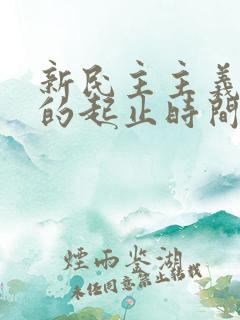 新民主主義
的起止時間
煙雨鉴湖
未任同意禁止转载